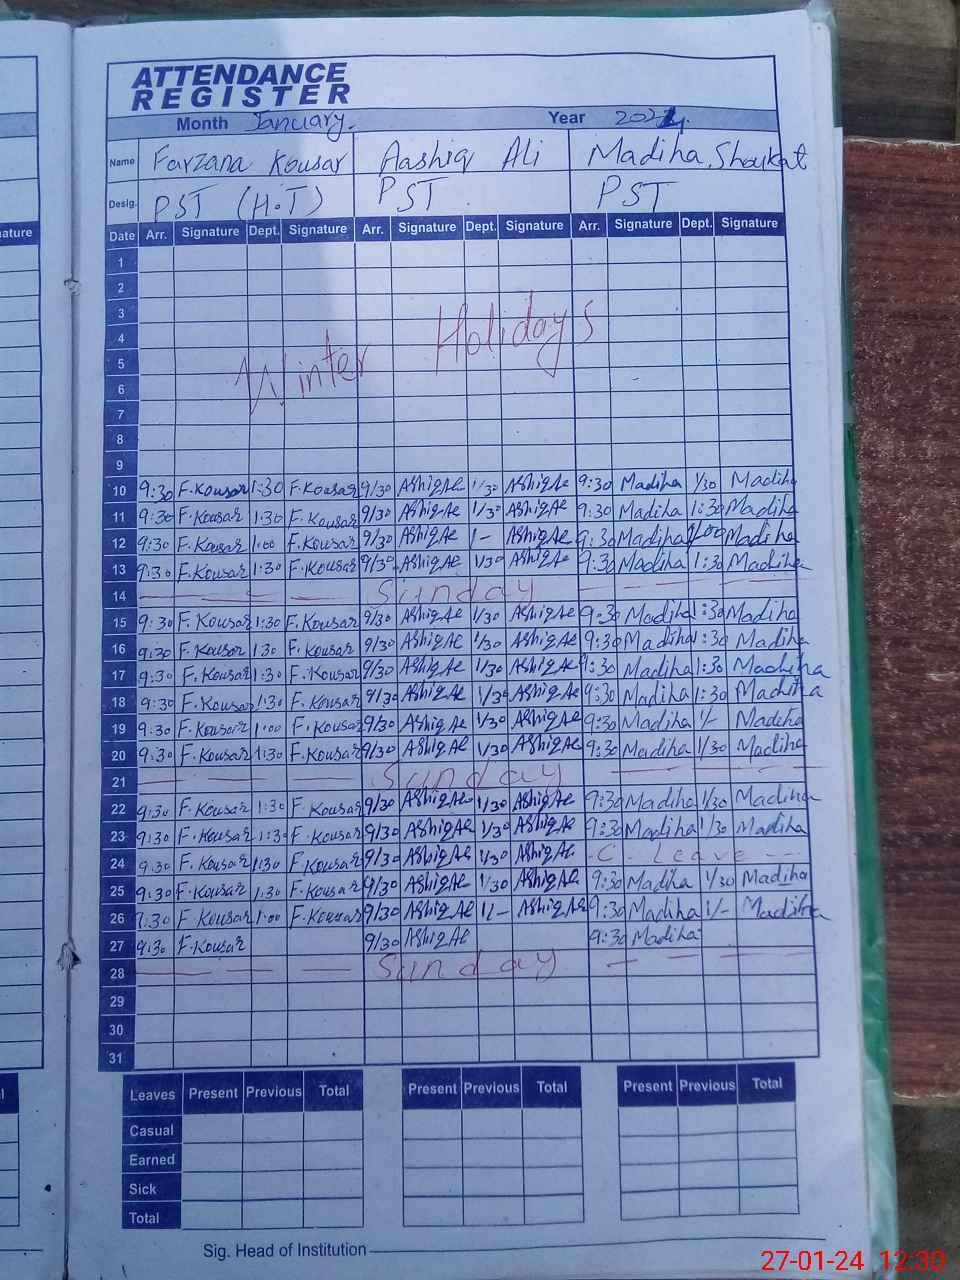 ATTENDANCE
REGISTER
Month January. Year 2024.
Name Farzana Kousar Aashiq Ali Madiha Shoukat
Desig. PST (H.T) PST. PST
Date Arr. Signature Dept. Signature Arr. Signature Dept. Signature Arr. Signature Dept. Signature
1
2
3
4
5
6
7
8
9
Winter Holidays
10 9:30 F.Kousar 1:30 F.Kousar 9/30 AShiqAe 1/30 AShiqAe 9:30 Madiha 1/30 Madiha
11 9:30 F.Kousar 1:30 F.Kousar 9/30 AShiqAe 1/30 AShiqAe 9:30 Madiha 1:30 Madiha
12 9:30 F.Kousar 1:00 F.Kousar 9/30 AShiqAe 1- AShiqAe 9:30 Madiha 1:00 Madiha
13 9:30 F.Kousar 1:30 F.Kousar 9/30 AShiqAe 1/30 AShiqAe 9:30 Madiha 1:30 Madiha
14 Sunday
15 9:30 F.Kousar 1:30 F.Kousar 9/30 AShiqAe 1/30 AShiqAe 9:30 Madiha 1:30 Madiha
16 9:30 F.Kousar 1:30 F.Kousar 9/30 AShiqAe 1/30 AShiqAe 9:30 Madiha 1:30 Madiha
17 9:30 F.Kousar 1:30 F.Kousar 9/30 AShiqAe 1/30 AShiqAe 9:30 Madiha 1:30 Madiha
18 9:30 F.Kousar 1:30 F.Kousar 9/30 AShiqAe 1/30 AShiqAe 9:30 Madiha 1:30 Madiha
19 9:30 F.Kousar 1:00 F.Kousar 9/30 AShiqAe 1/30 AShiqAe 9:30 Madiha 1/- Madiha
20 9:30 F.Kousar 1:30 F.Kousar 9/30 AShiqAe 1/30 AShiqAe 9:30 Madiha 1/30 Madiha
21 Sunday
22 9:30 F.Kousar 1:30 F.Kousar 9/30 AShiqAe 1/30 AShiqAe 9:30 Madiha 1/30 Madiha
23 9:30 F.Kousar 1:30 F.Kousar 9/30 AShiqAe 1/30 AShiqAe 9:30 Madiha 1/30 Madiha
24 9:30 F.Kousar 1:30 F.Kousar 9/30 AShiqAe 1/30 AShiqAe C - Leave
25 9:30 F.Kousar 1:30 F.Kousar 9/30 AShiqAe 1/30 AShiqAe 9:30 Madiha 1/30 Madiha
26 9:30 F.Kousar 1:00 F.Kousar 9/30 AShiqAe 1/- AShiqAe 9:30 Madiha 1/- Madiha
27 9:30 F.Kousar 9/30 AShiqAe 9:30 Madiha
28 Sunday
29
30
31
Leaves Present Previous Total Present Previous Total Present Previous Total
Casual
Earned
Sick
Total
Sig. Head of Institution
27-01-24 12:30